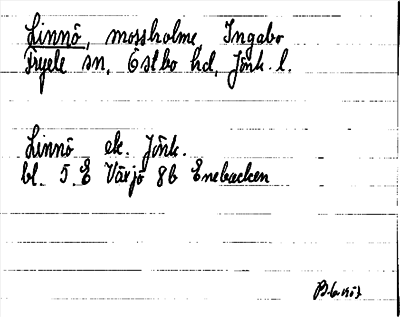 Linnö, mossholme Ingabo
Fryele sn, Östbo hd, Jönk. l.
Linnö ek. Jönk.
bl. 5 E Växjö 8b Enebacken